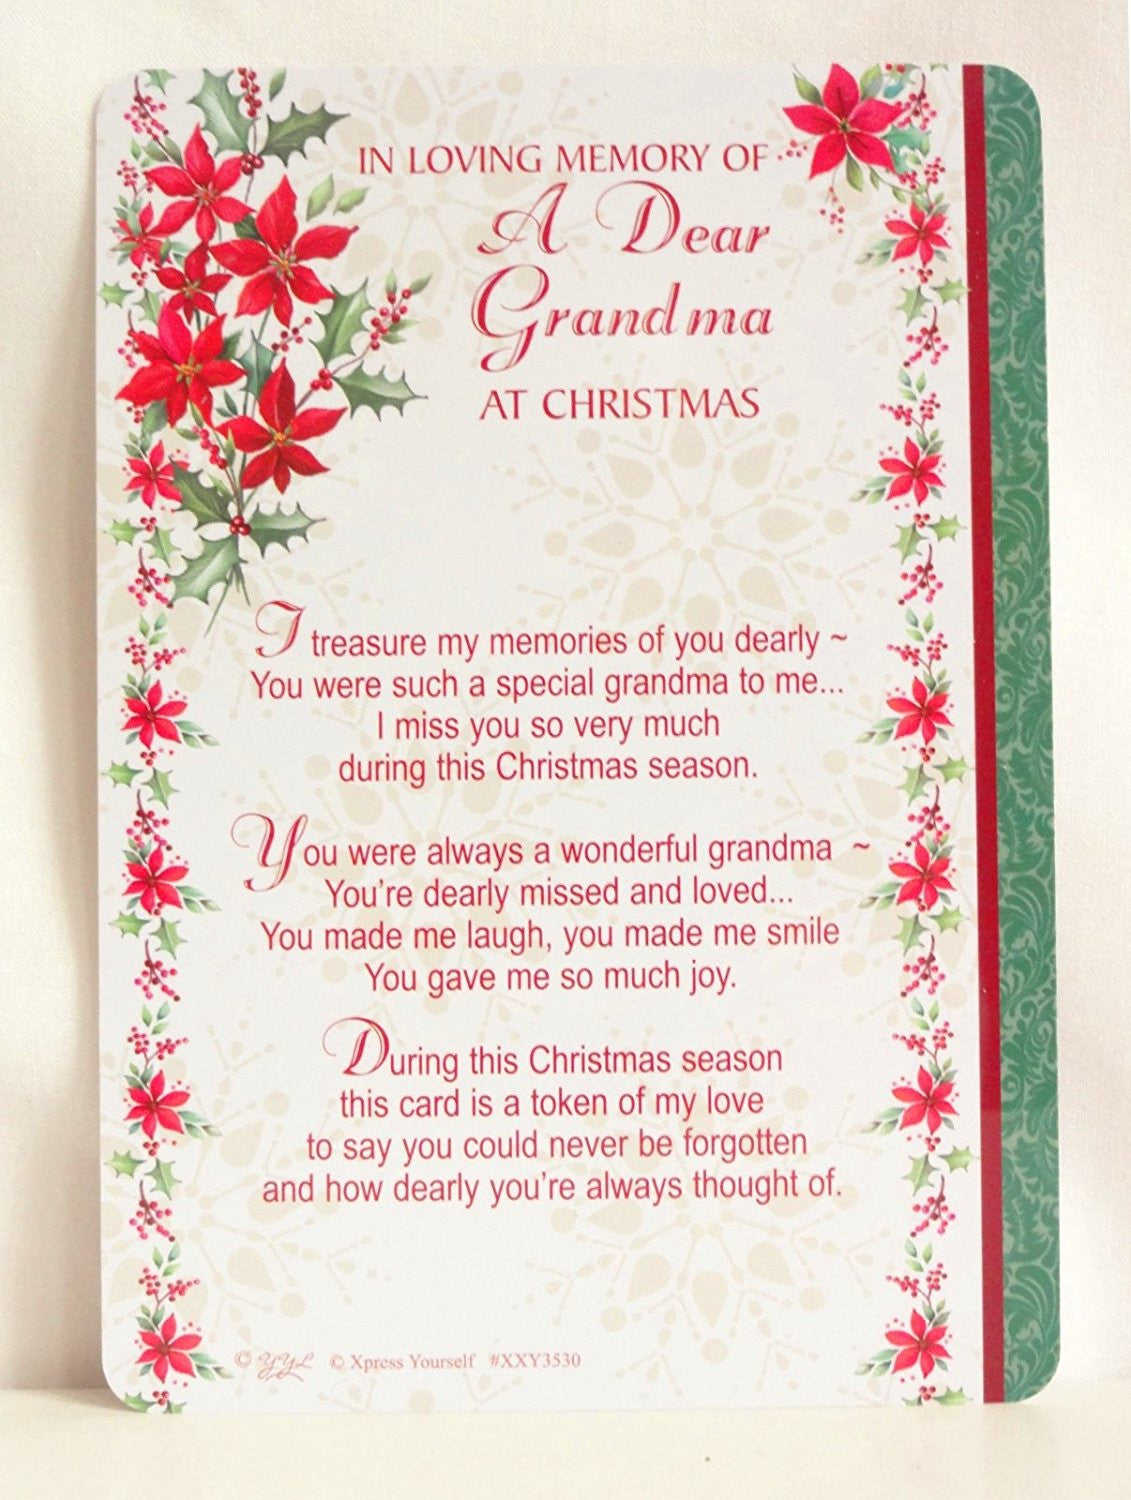 IN LOVING MEMORY OF
A Dear
Grandma
AT CHRISTMAS
I treasure my memories of you dearly ~
You were such a special grandma to me...
I miss you so very much
during this Christmas season.
You were always a wonderful grandma ~
You're dearly missed and loved...
You made me laugh, you made me smile
You gave me so much joy.
During this Christmas season
this card is a token of my love
to say you could never be forgotten
and how dearly you're always thought of.
© YYL © Xpress Yourself #XXY3530